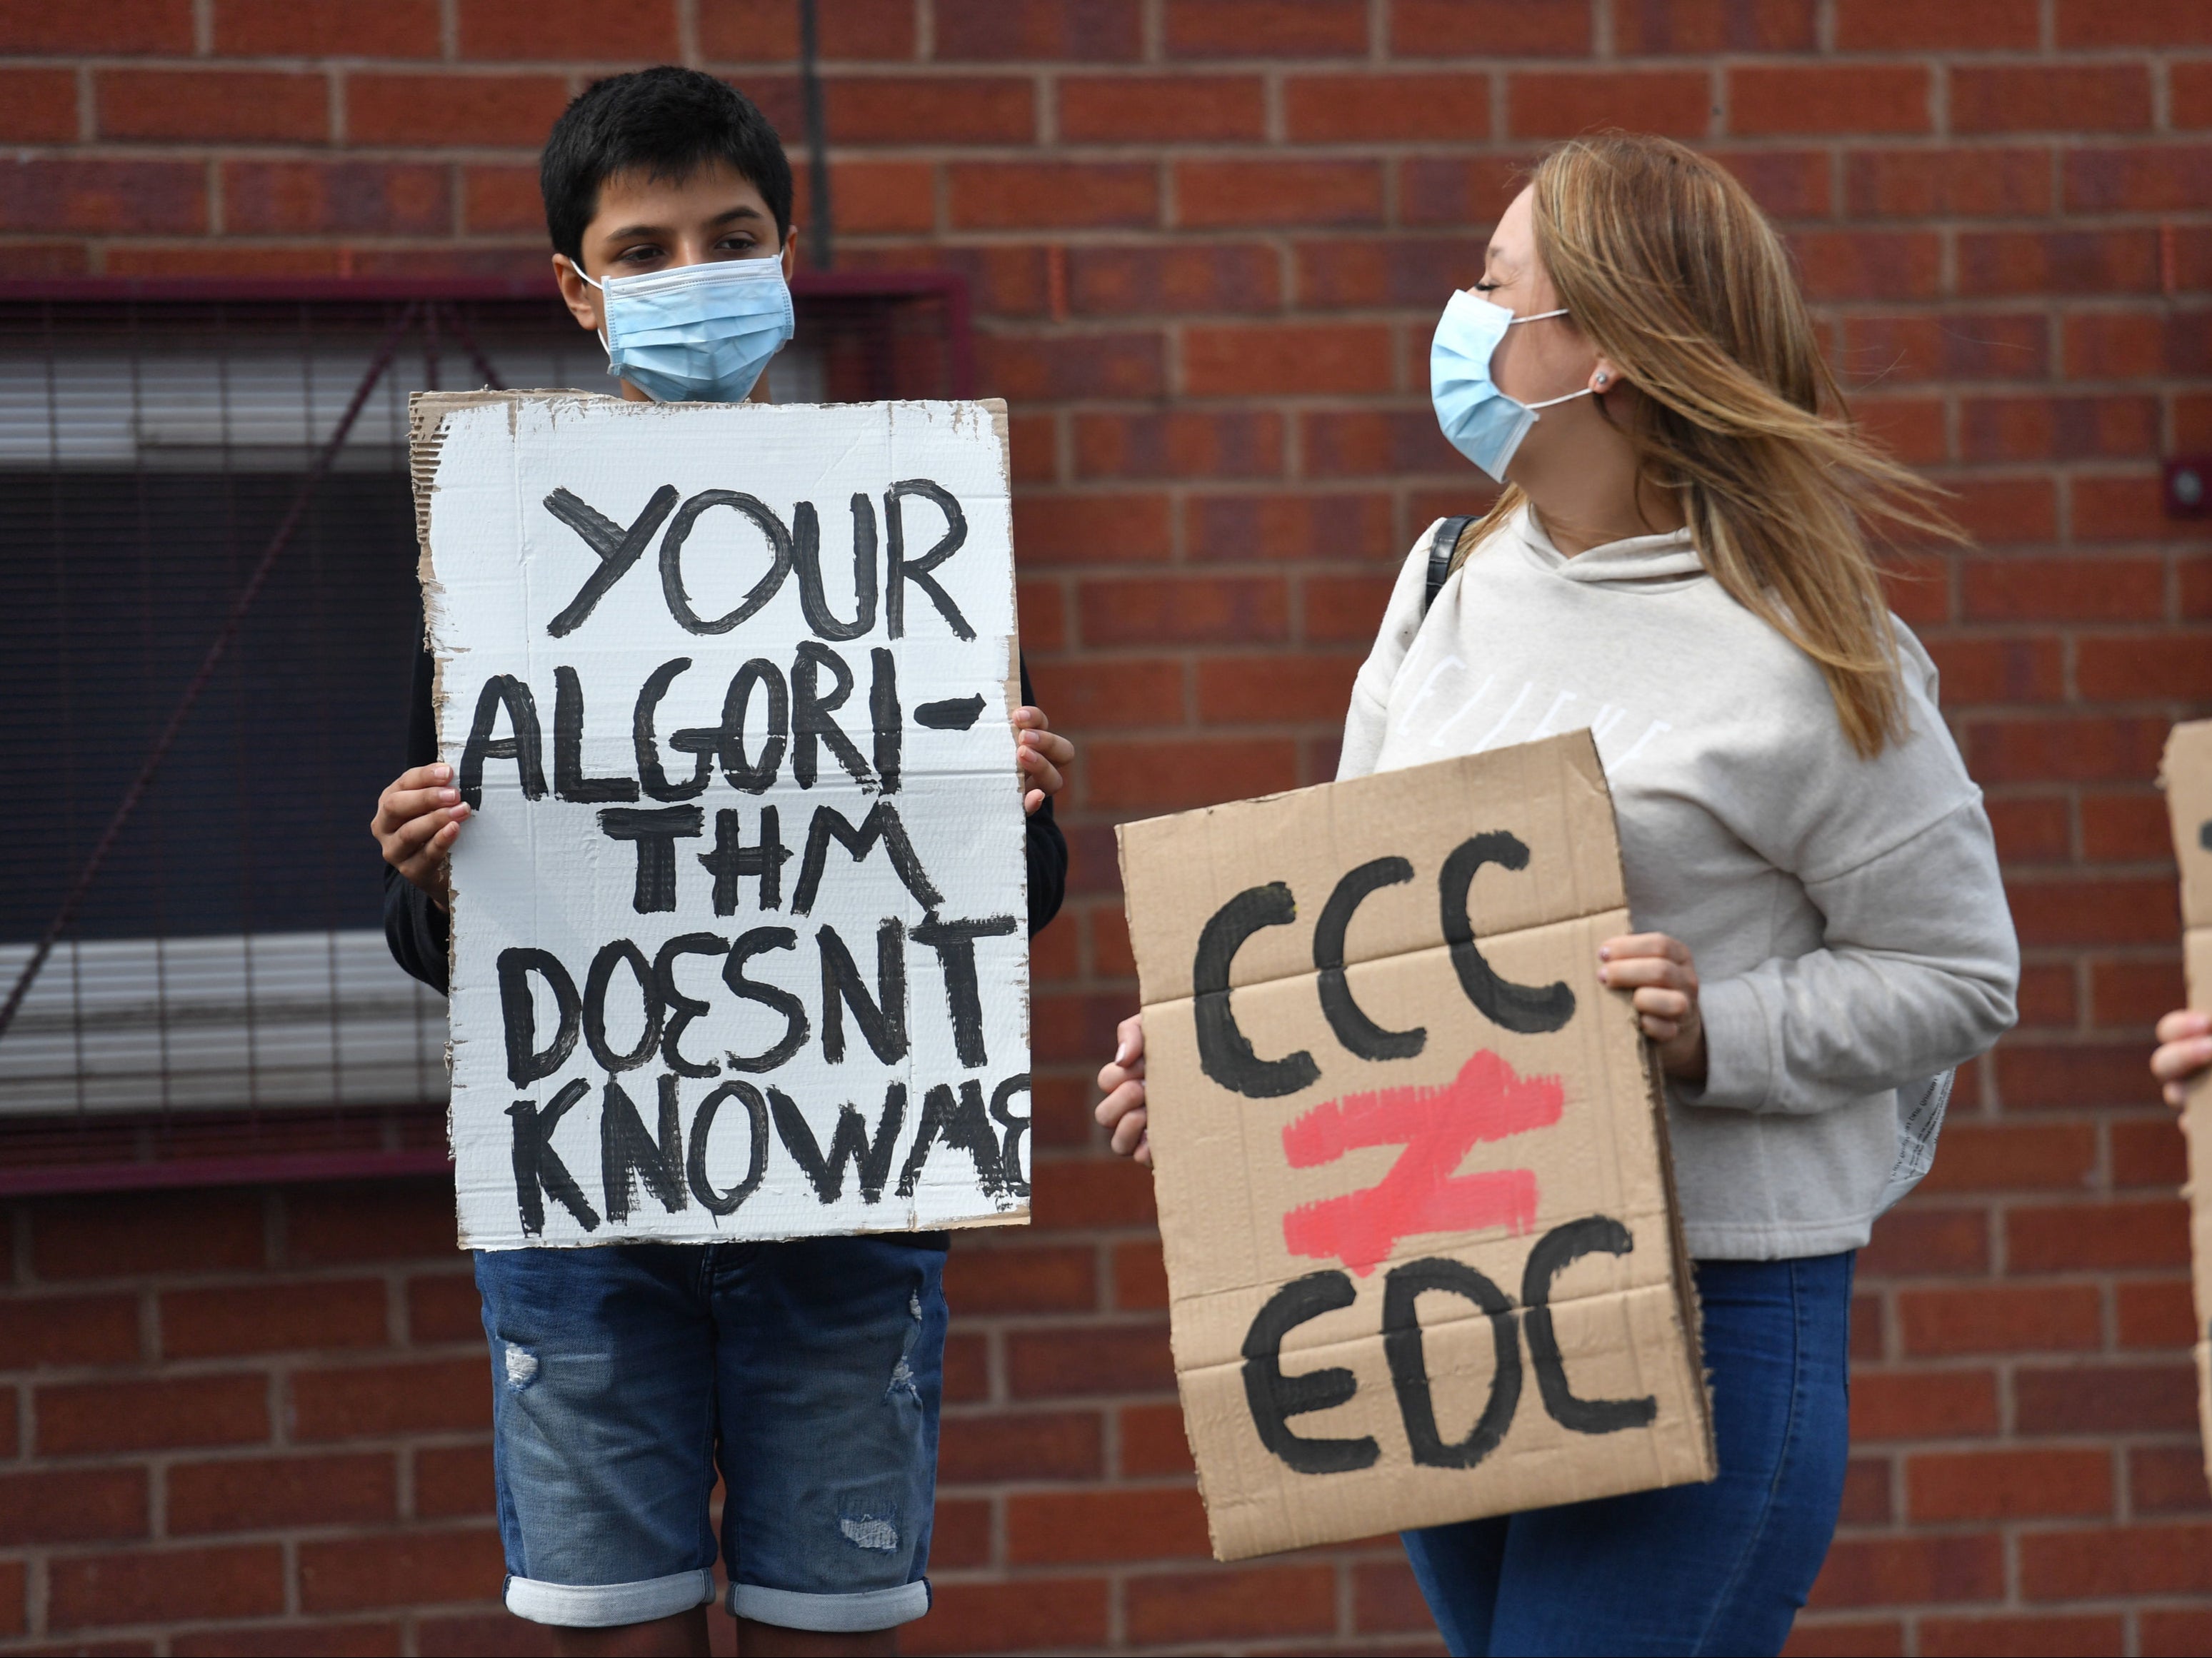 YOUR
ALGORI-
THM
DOESNT
KNOW ME
CCC
≠
EDC